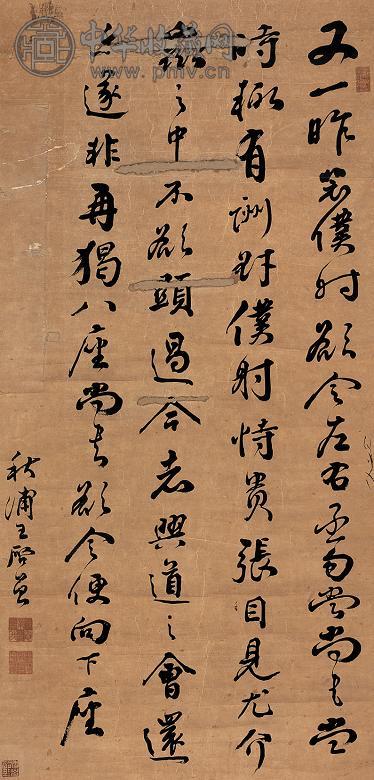 中华收藏网
www.pmv.cn
又一昨裴僕射欲令左右丞勾當尚書當
時輒有酬對僕射恃貴張目見尤介
衆之中不欲顯過今者興道之會還
爾遂非再猲八座尚書欲令便向下座
秋浦王